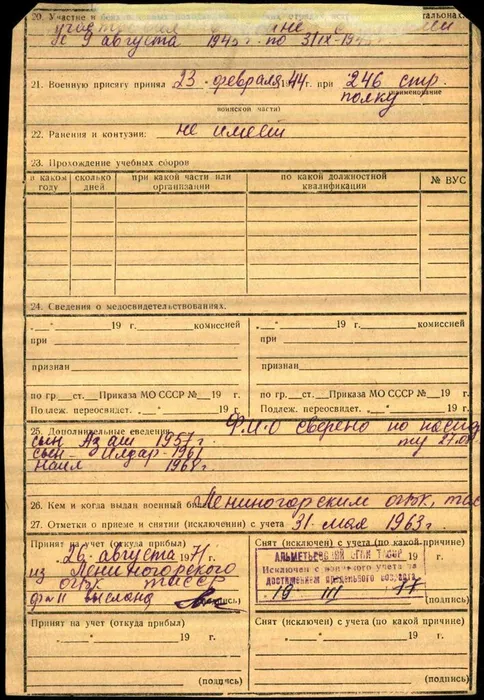 20. Участие
тальонах.
участ
с 9 августа 1945 г. по 3/IX-1945
21. Военную присягу принял 23 февраля 1944 г. при 246 стр.
полку
наименование
воинской части)
22. Ранения и контузии: не имеет
23. Прохождение учебных сборов
в каком году
сколько дней
при какой части или организации
по какой должностной квалификации
№ ВУС
24. Сведения о медосвидетельствованиях.
„__“ 19 г. комиссией
при
признан
по гр.__ст.__Приказа МО СССР №__19 г.
Подлеж. переосвидет. „__“ 19 г.
„__“ 19 г. комиссией
при
признан
по гр.__ст.__Приказа МО СССР №__19 г.
Подлеж. переосвидет. „__“ 19 г.
25. Дополнительные сведения Ф.И.О сверено по паспор
ту 27.0
сын Азат 1957 г.
сын- Илдар-1961
наил 1968г.
26. Кем и когда выдан военный би Лениногорским огвк, тас
27. Отметки о приеме и снятии (исключении) с учета 31 мая 1963г.
Принят на учет (откуда прибыл)
„26“ августа 1971 г.
из Лениногорского
огвк тасср
высланд
(подпись)
Снят (исключен) с учета (по какой причине)
АЛЬМЕТЬЕВСКИЙ ОГВК ТАССР
Исключен с воинского учета по
достижении предельного возраста
19 III 77
(подпись)
Принят на учет (откуда прибыл)
„__“ 19 г.
(подпись)
Снят (исключен) с учета (по какой причине)
„__“ 19 г.
(подпись)